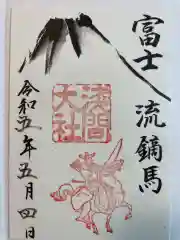 富士流鏑馬
浅間
大社
令和五年五月四日